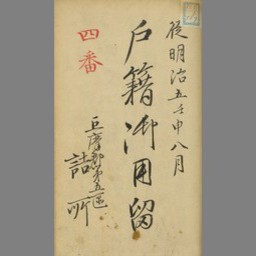 従明治五壬申八月
戸籍御用留
四番
巨摩郡第五区
詰所